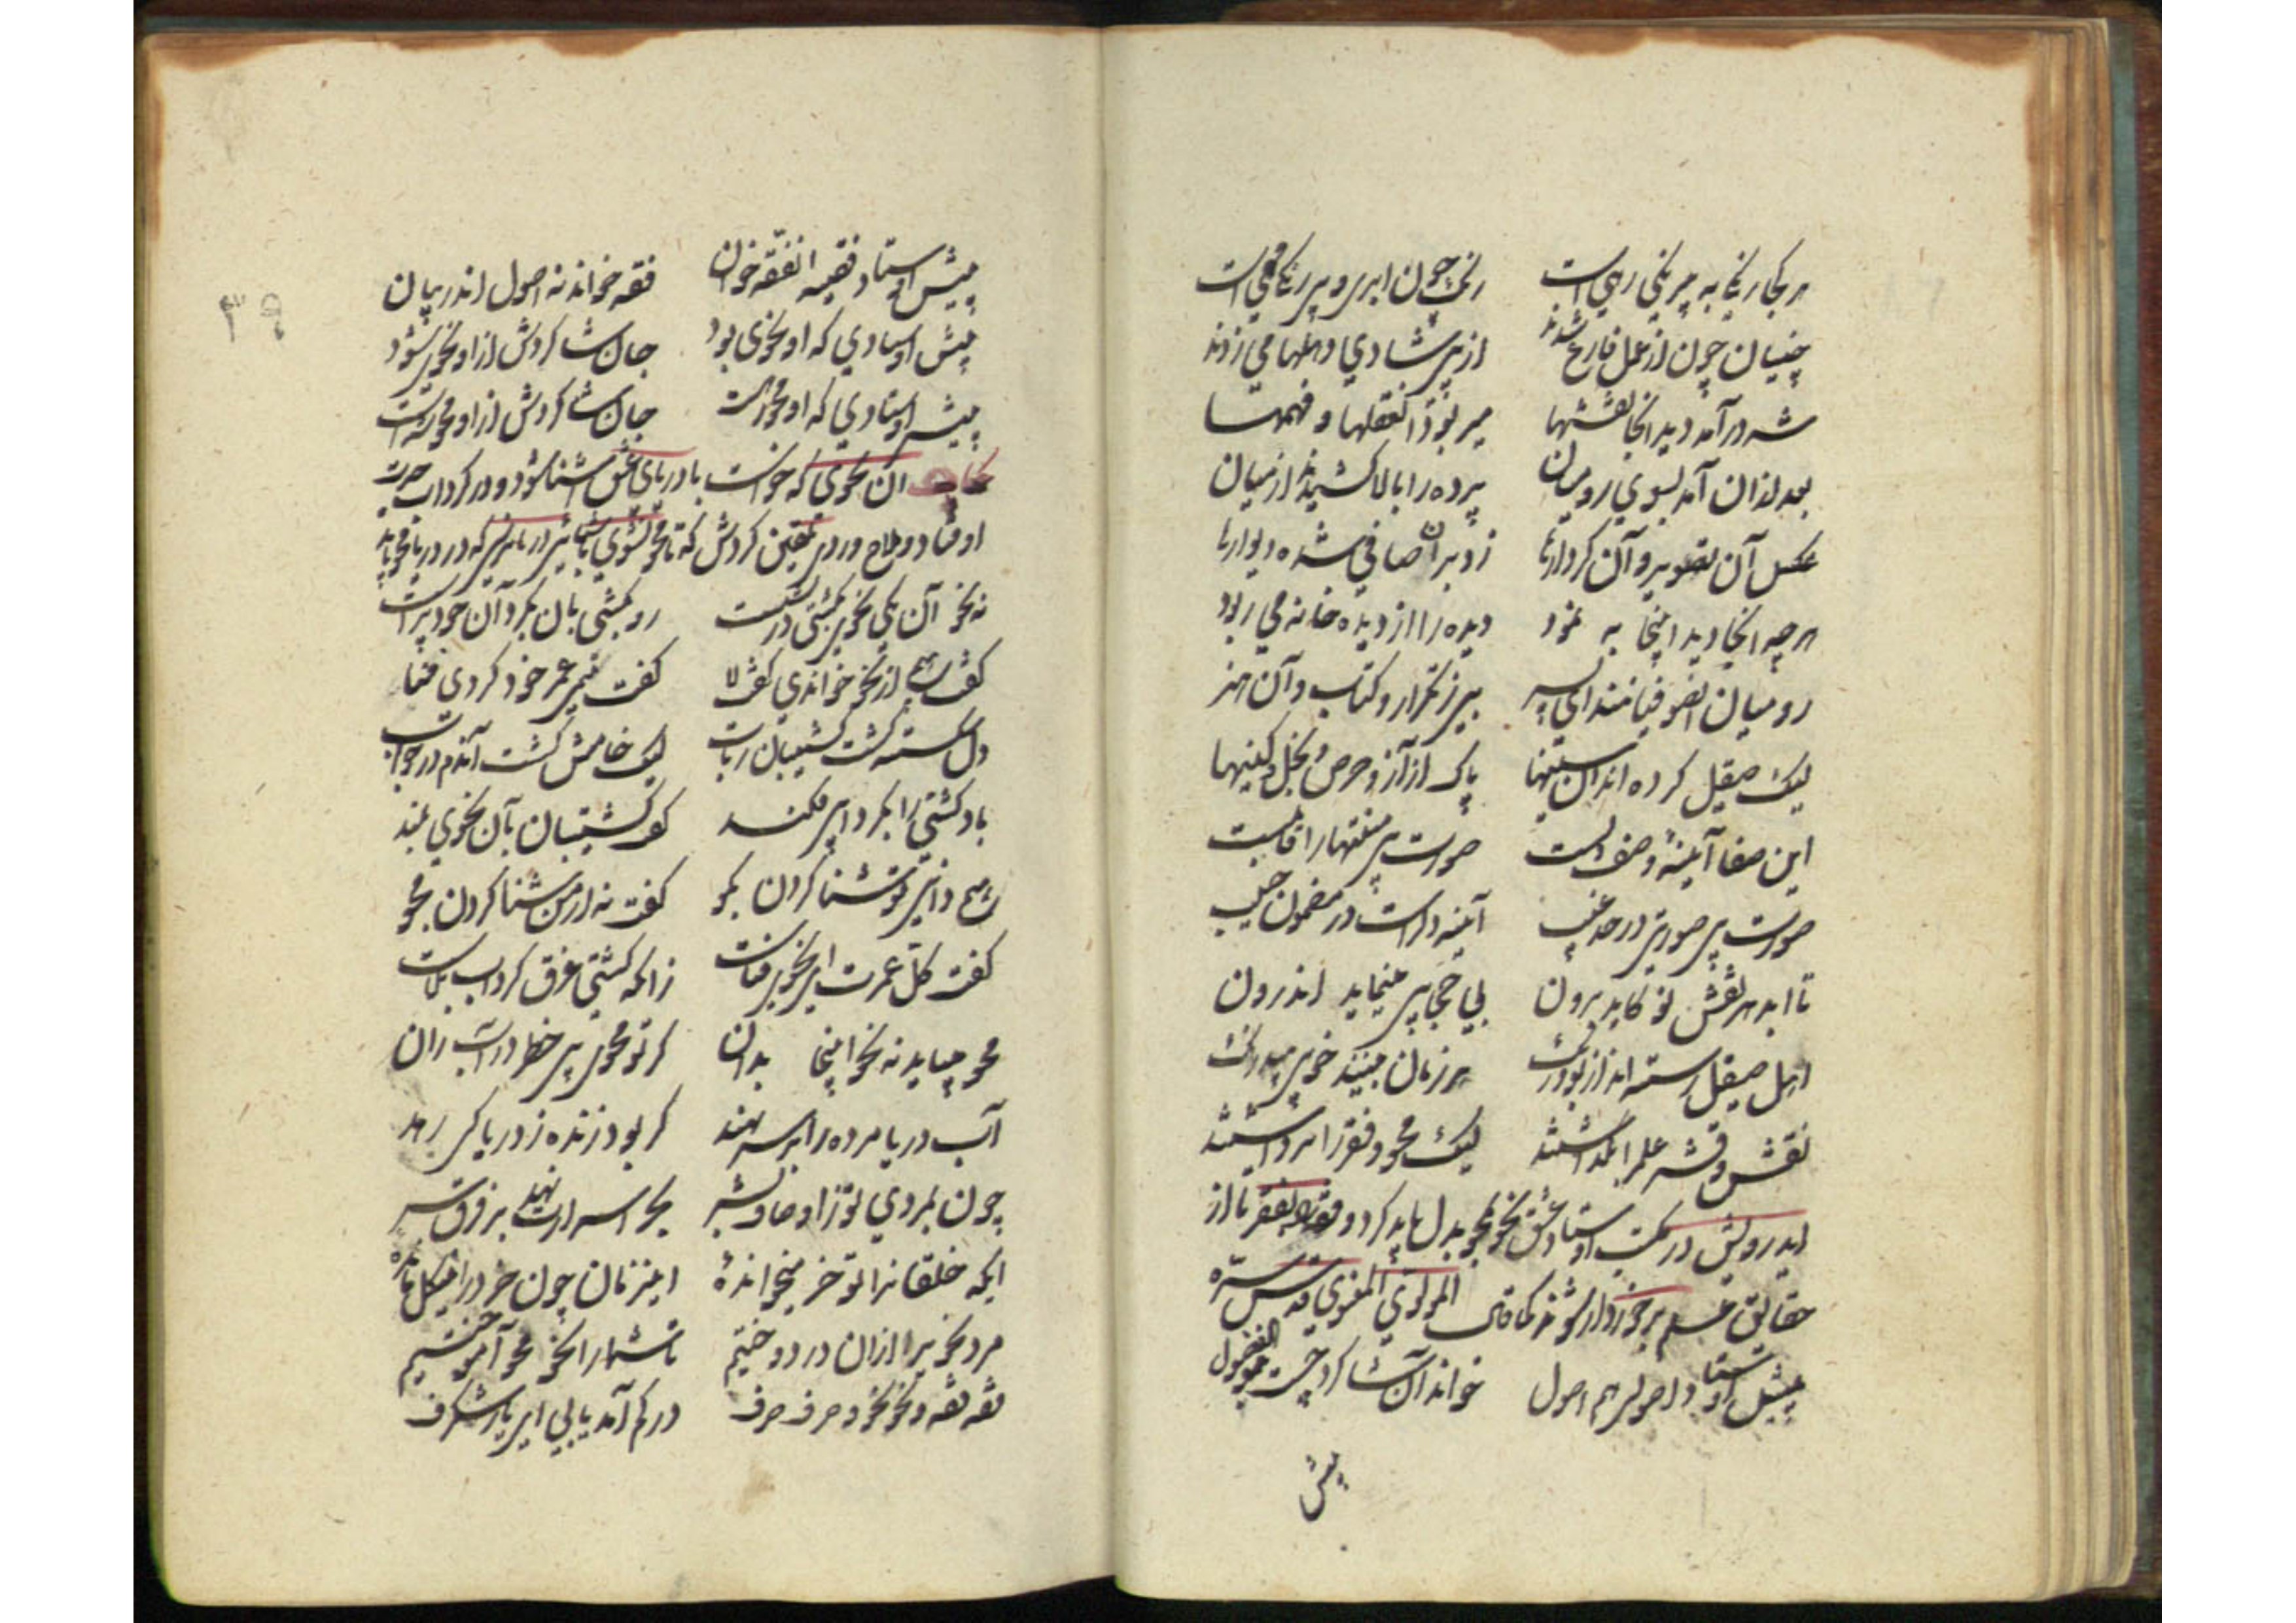 از دو صد رنگی به بی رنگی رهیست رنگ چون ابر و بی رنگی مهیست
چینیان چون از عمل فارغ شدند از پی شادی دهلها می زدند
شه در آمد دید آنجا نقشها می ربود آن عقلها و فهمها
بعد از آن آمد بسوی رومیان پرده را بالا کشیدند از میان
عکس آن تصویر و آن کردارها زد برآن صافی شده دیوارها
هرچه آنجا دید اینجا به نمود دیده را از دیده خانه می ربود
رومیان آن صوفیانند ای پسر بی ز تکرار و کتاب و آن هنر
لیک صیقل کرده اند آن سینها پاک از آز و حرص و بخل و کینها
این صفا آئینهٔ وصف دلست صورت بی منتها را قابلست
صورت بی صورتی در حد غیب آئینه دلراست در مضمون جیب
تا ابد هر نقش نو کاید برون بی حجابی مینماید اندرون
اهل صیقل رسته اند از بو و رنگ هر زمان بینند خوبی بیدرنگ
نقش و قشر علم را بگذاشتند لیک محو و فقر را برداشتند
ایدرویش در مکتب اوستاد عشق نحو محو بدل باید کرد و فقه بفقر تا از
حقایق علم برخوردار شوند کما قال المولوی المعنوی قدس سره
پیش اوستاد اصولی هم اصول خواند آن شاگرد چست
پیش
۳۹
پیش اوستاد فقیه آن فقه خوان فقه خواند نه اصول اندر بیان
پیش اوستادی که او نحوی بود جان شاگردش ازو نحوی شود
پیش اوستادی که او محو رهست جان شاگردش ازو محو شهست
حکایت آن نحوی که خواست با دریای عشق آشنا شود و در کرداب حیرت
اوفتاد و ملاح ورد تلقین کردش که تا محو نشوی
آن یکی نحوی بکشتی در نشست رو بکشتی بان بکرد آن خودپرست
گفت هیچ از نحو خواندی گفت لا گفت نیم عمر خود کردی فنا
دل شکسته گشت کشتیبان ز تاب لیک خامش گشت آندم در جواب
باد کشتی را بکردابی فکند گفت کشتیبان بآن نحوی بلند
هیچ دانی تو شنا کردن بگو گفت نه از من شنا کردن مجو
گفت کل عمرت ای نحوی فناست زانکه کشتی غرق کرداب بلاست
محو میباید نه نحو اینجا بدان گر تو محوی بی خطر در آب ران
آب دریا مرده را بر سر نهد گر بود زنده ز دریا کی رهد
چون بمردی تو ز اوصاف بشر بحر اسرارت نهد بر فرق سر
ایکه خلقانرا تو خر میخواندهٔ این زمان چون خر در این گل ماندهٔ
مرد نحوی را از آن در دوختیم تا شما را نحو محو آموختیم
فقه فقه و نحو نحو و صرف صرف در کم آمد یابی ای یار شگرف